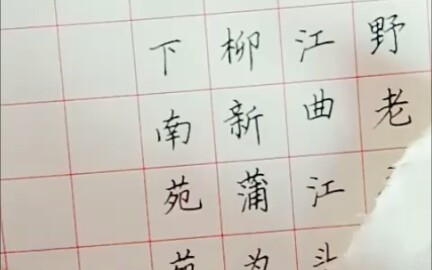 野老
江曲江头
柳新蒲为
下南苑苑